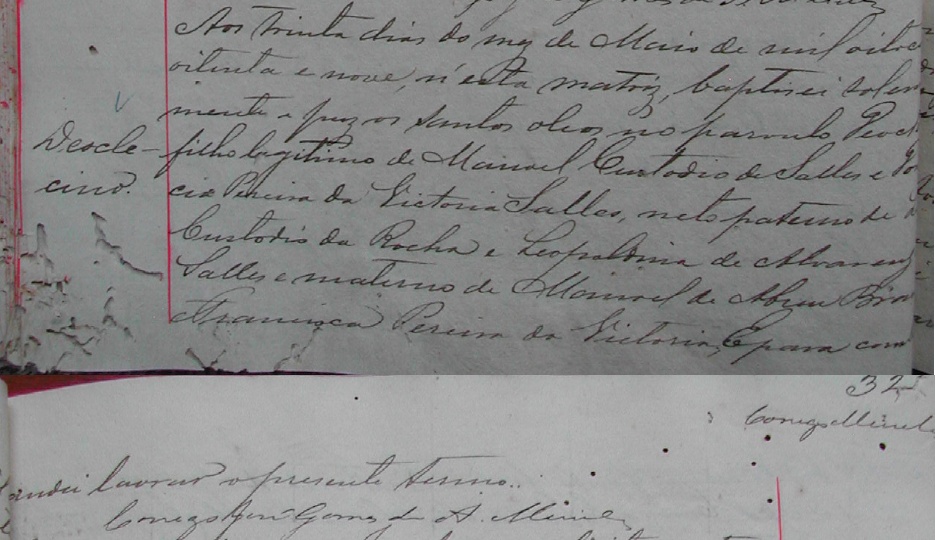 Aos trinta dias do mez de Maio de mil oitoc
oitenta e nove, n'esta matriz, baptisei solem
mente e puz os santos oleos no parvulo
Descle-
cino.
filho legitimo de Manoel Custodio de Salles e
cia Pereira da Victoria Salles, neto paterno de
Custodio da Rocha e Leopoldina de Alvareng
Salles e materno de Manoel de Abreu
Francisca Pereira da Victoria, E para con
32
Conego
andei lavrar o presente termo.
Conego José Gomes de A.